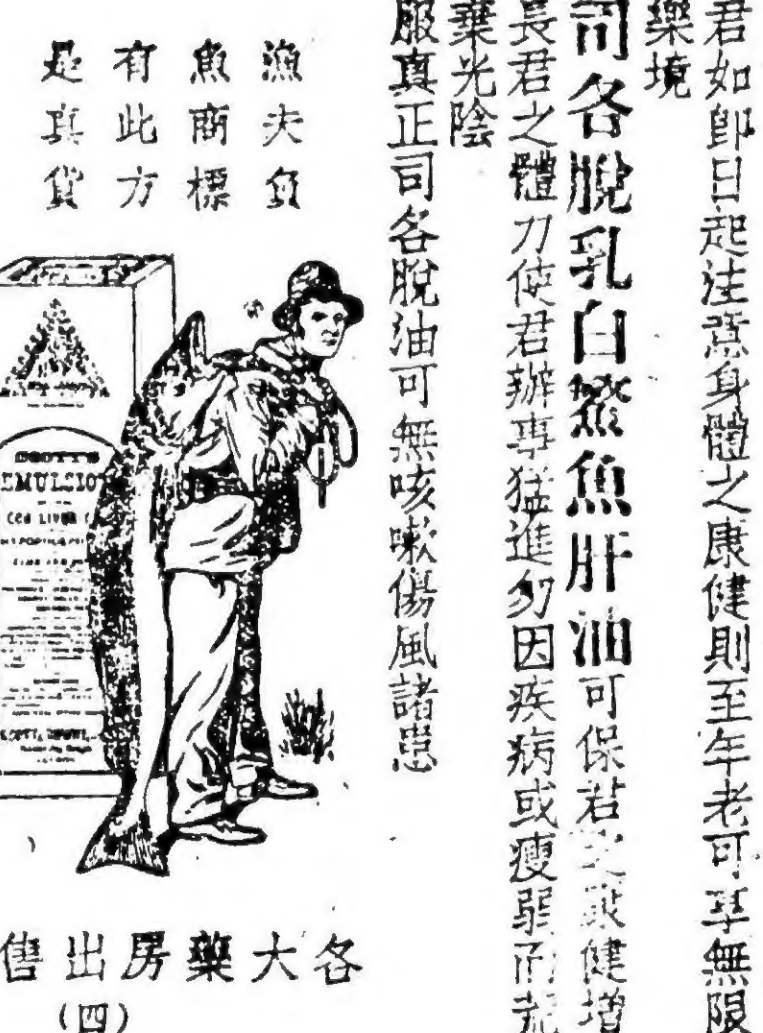 君如卽日起注意身體之康健則至年老可享無限
樂境
司各脫乳白鰵魚肝油可保君之康健增
長君之體力使君辦事猛進勿因疾病或瘦弱而荒
棄光陰
服眞正司各脫油可無咳嗽傷風諸患
漁夫負
魚商標
有此方
是眞貨
SCOTT'S
EMULSIO
COD LIVER
各大藥房出售
(四)